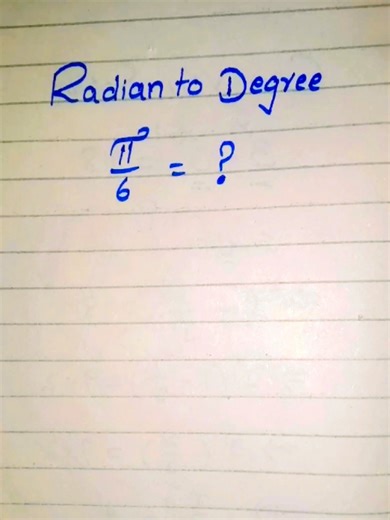 Radian to Degree
π/6 = ?